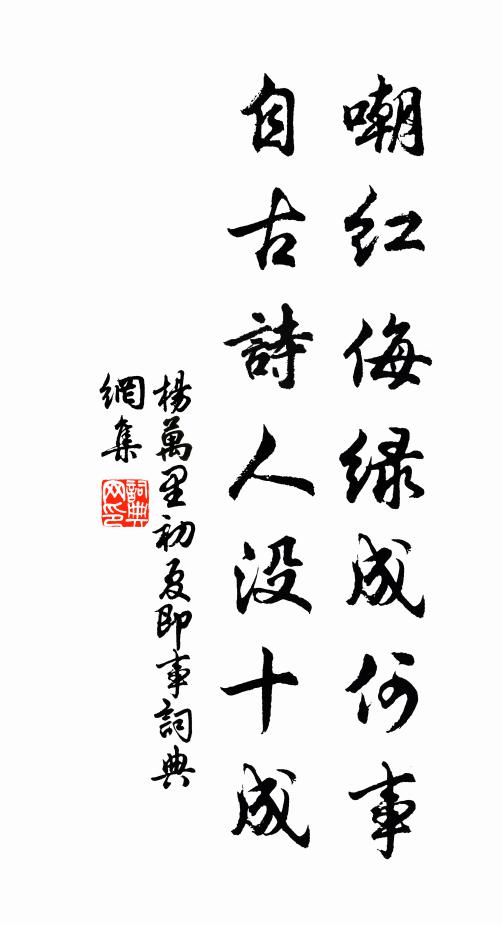 嘲紅侮绿成何事
自古詩人没十成
楊萬里初夏即事詞典
網集
詞典網印